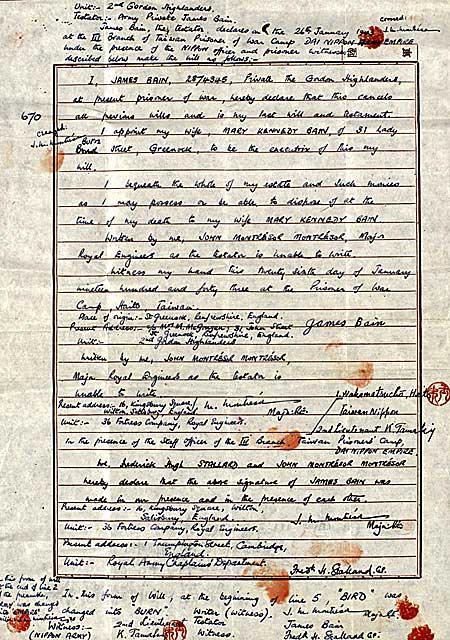 Unit:- 2nd Gordon Highlanders.
Testator:- Army Private James Bain.
James Bain, the testator declares on the 26th January
at the III Branch of Taiwan Prisoner of War Camp DAI NIPPON
under the presence of the NIPPON officer and prisoner witnesses
described below make the will as follows:-
I, JAMES BAIN, 2874345, Private the Gordon Highlanders,
670
at present prisoner of war, hereby declare that this cancels
all previous wills and is my last will and testament.
I appoint my wife, MARY KENNEDY BAIN, of 31 Lady
Burn
Street, Greenock, to be the executrix of this my
will.
I bequeath the whole of my estate and such monies
as I may possess or be able to dispose of at the
time of my death to my wife MARY KENNEDY BAIN.
Written by me, JOHN MONTRESOR MONTRESOR, Major
Royal Engineers as the testator is unable to write.
Witness my hand this twenty sixth day of January
nineteen hundred and forty three at the Prisoner of War
Camp, Haito Taiwan.
Place of origin:- Greenock, Renfrewshire, England.
Present Address:- c/o Mrs M. McGroger, 31, John Street
Greenock, Renfrewshire, England.
James Bain
Unit:- 2nd Gordon Highlanders
Written by me, JOHN MONTRESOR MONTRESOR,
Major Royal Engineers as the testator is
unable to write.
Present address:- 16, Kingsbury Square,
Wilton, Salisbury, England.
Major
Taiwan Nippon
Unit:- 36 Fortress Company, Royal Engineers.
2nd Lieutenant K.
In the presence of the Staff Officer of the III Branch Taiwan Prisoners' Camp,
DAI NIPPON EMPIRE.
We, Frederick Hugh STALLARD and JOHN MONTRESOR MONTRESOR
hereby declare that the above signature of JAMES BAIN was
made in our presence and in the presence of each other.
Present address:- 16, Kingsbury Square, Wilton,
Salisbury, England.
Unit:- 36 Fortress Company, Royal Engineers.
Major
Present address:- Trumpington Street, Cambridge,
England.
Unit:- Royal Army Chaplains Department.
In this form of Will, at the beginning of line 5, "BIRD" was
changed into "BURN". Writer (Witness).
2nd Lieutenant Testator James Bain
Witness:-
(NIPPON ARMY) K. Witness.